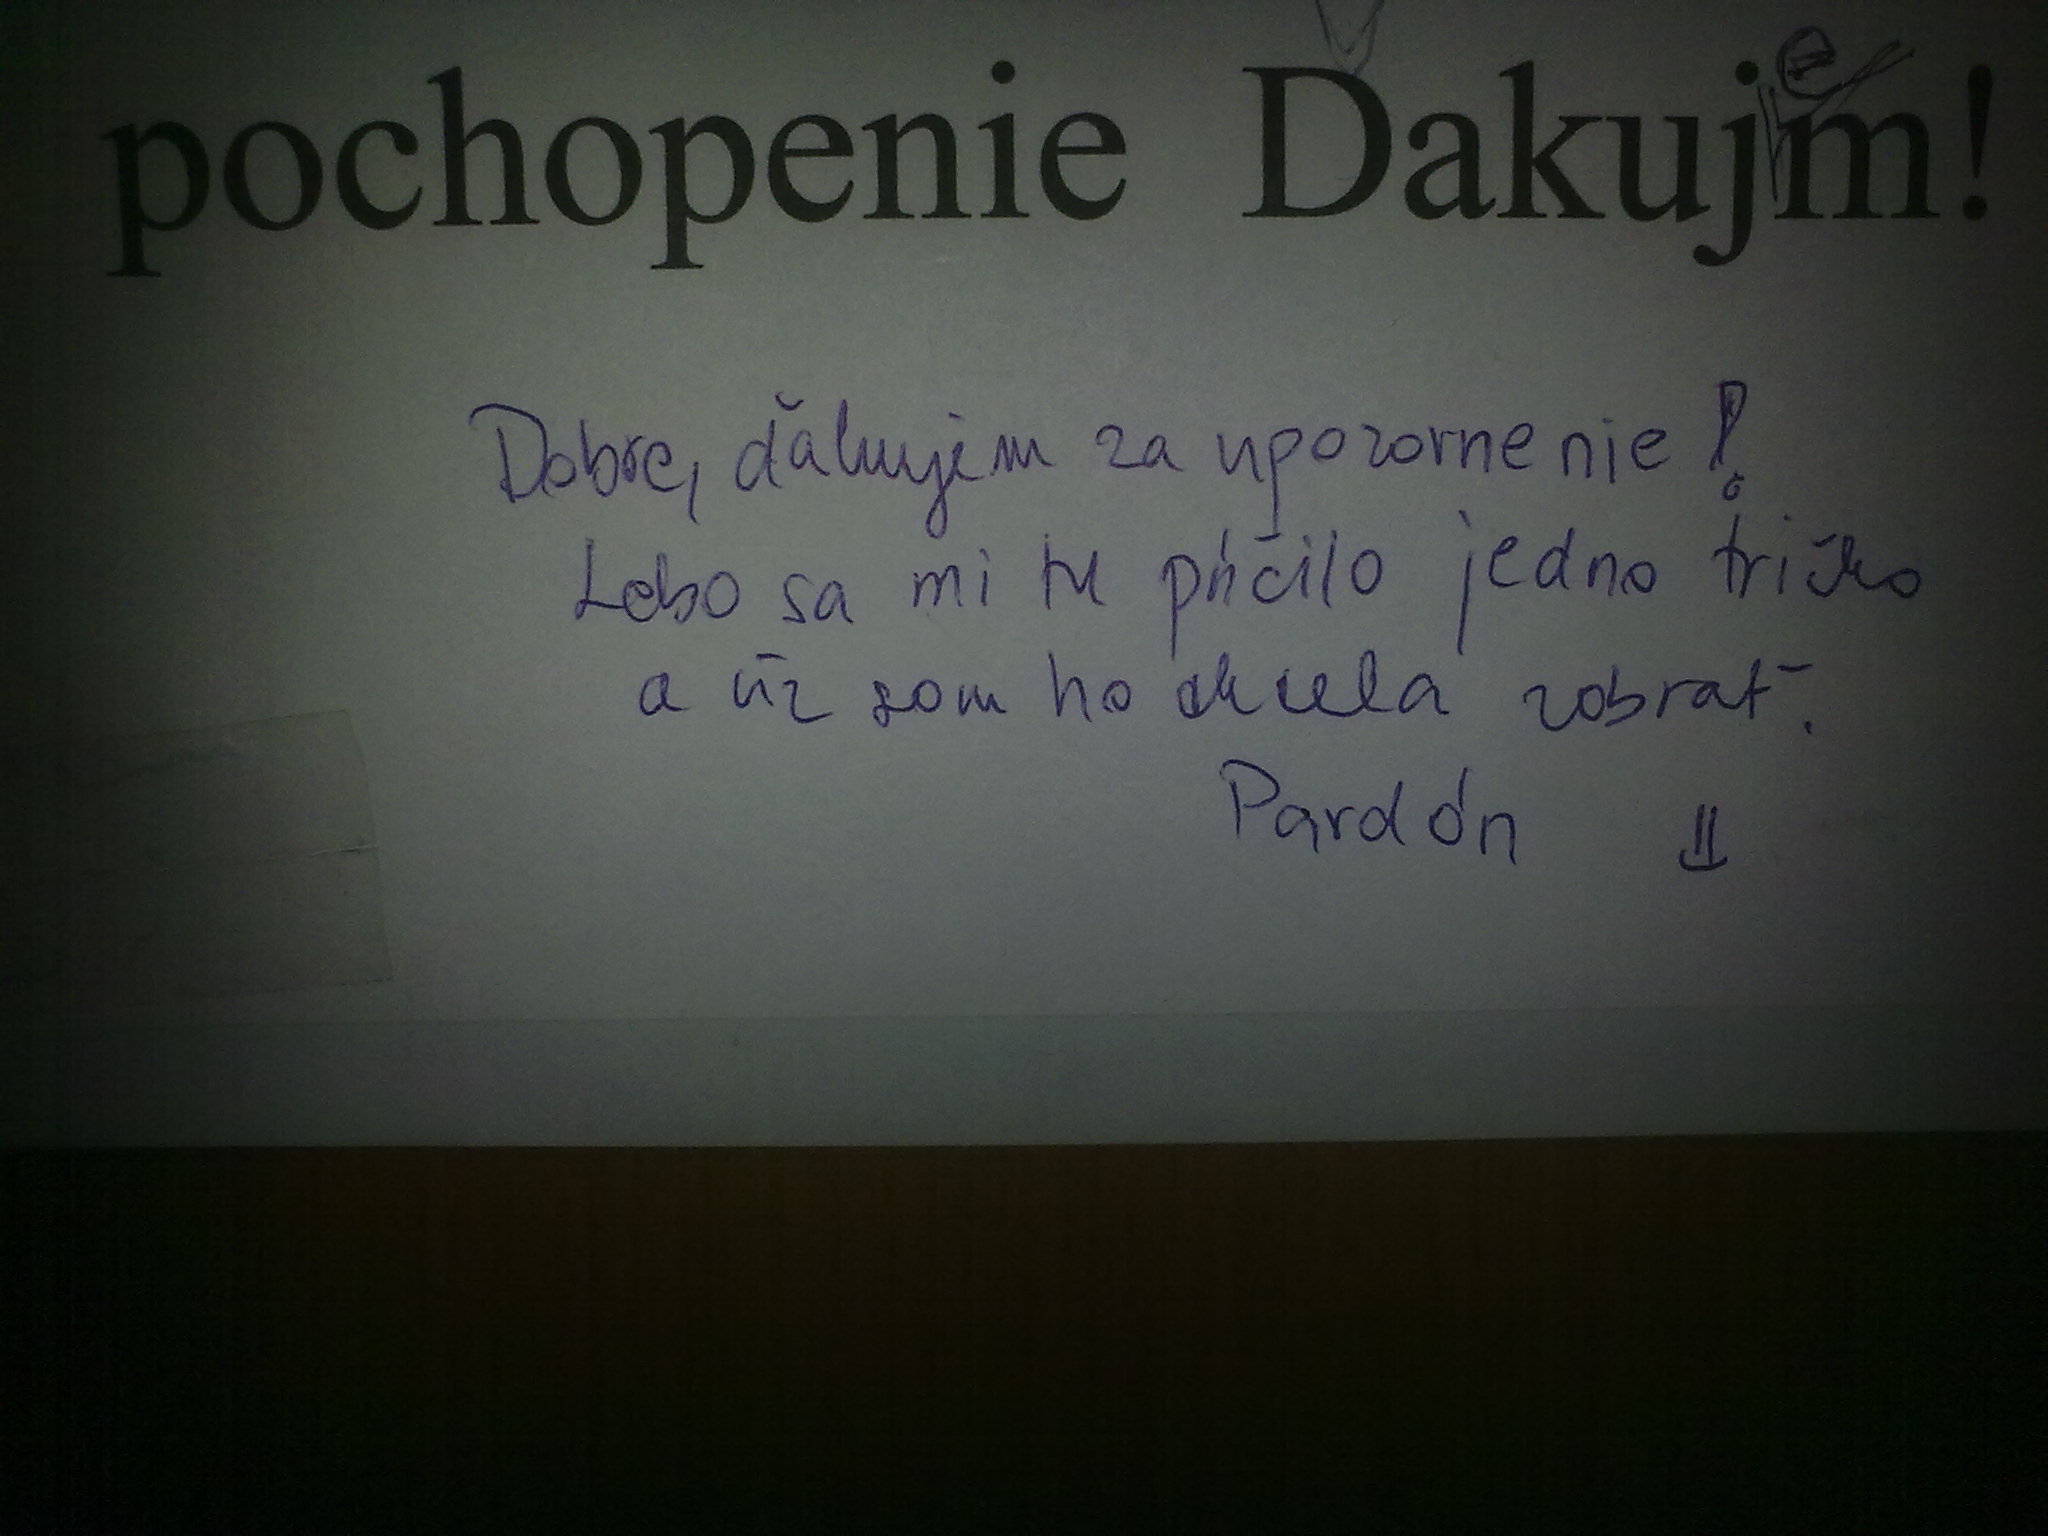 pochopenie Dakujm!
e
Dobre, ďakujem za upozornenie!
Lebo sa mi tu páčilo jedno tričko
a už som ho chcela zobrať.
Pardón